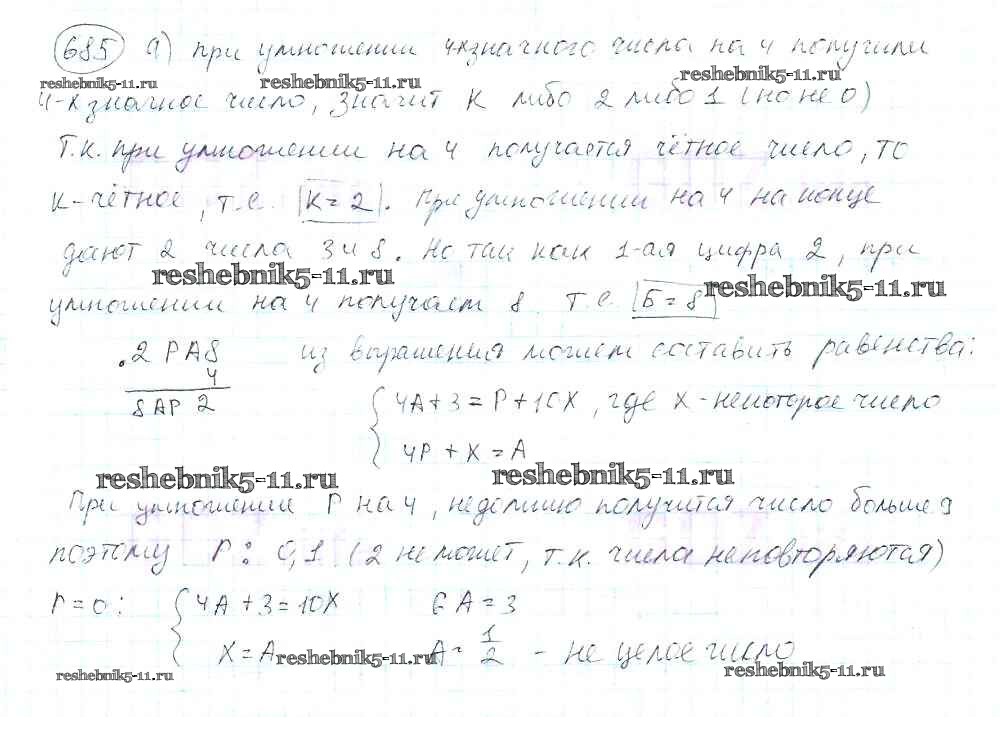 685 а) при умножении 4хзначного числа на 4 получили
reshebnik5-11.ru reshebnik5-11.ru reshebnik5-11.ru
4-хзначное число, значит К либо 2 либо 1 (но не 0)
Т.к. при умножении на 4 получается чётное число, то
К-чётное, т.е. К=2. При умножении на 4 на конце
дают 2 числа 3 и 8. Но так как 1-ая цифра 2, при
reshebnik5-11.ru reshebnik5-11.ru
умножении на 4 получаем 8 т.е. Б=8
.2РА8 из выражения можем составить равенства:
4
8АР2 {4А+3=Р+10Х, где х-некоторое число
4Р+Х=А
reshebnik5-11.ru reshebnik5-11.ru
При умножении Р на 4, не должно получится число больше 9
поэтому Р: 0,1 (2 не может, т.к. числа не повторяются)
Р=0: {4А+3=10Х 6А=3
Х=А А=1/2 - не целое число
reshebnik5-11.ru reshebnik5-11.ru reshebnik5-11.ru